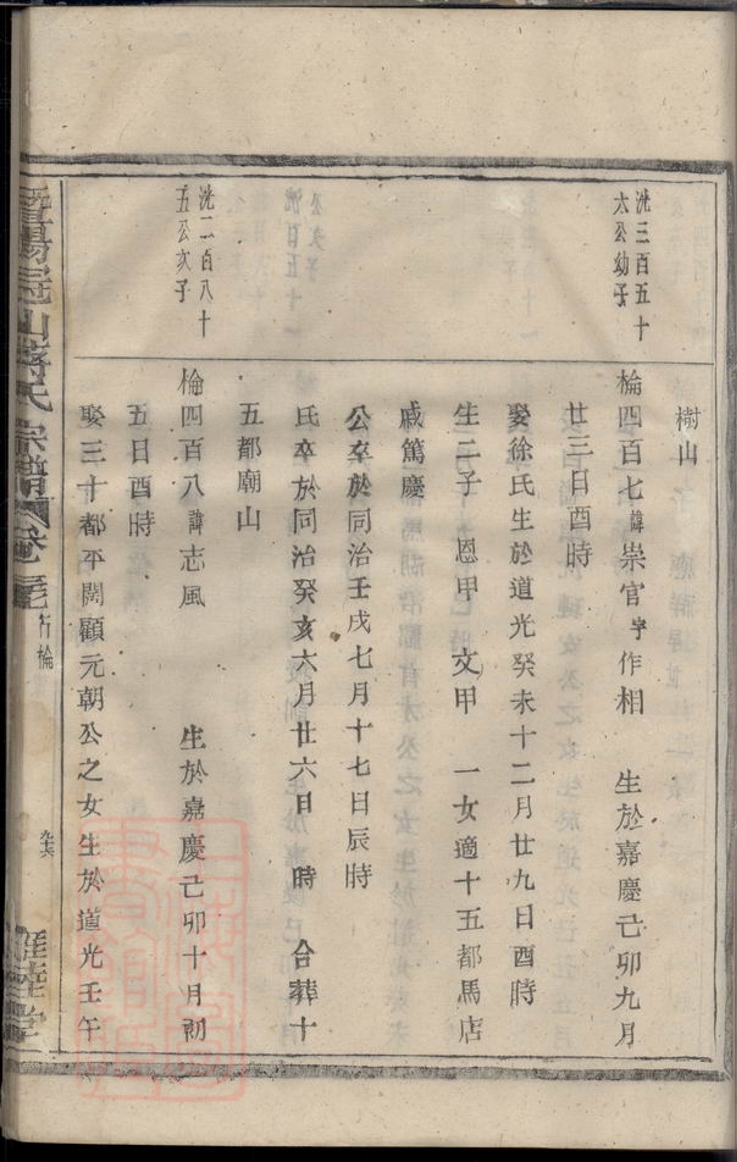 樹山
洸三百五十
六公幼子
棆四百七諱崇官字作相　生於嘉慶己卯九月
廿三日酉時
娶徐氏生於道光癸未十二月廿九日酉時
生二子　恩甲　文甲　一女適十五都馬店
戚篤慶
公卒於同治壬戌七月十七日辰時
氏卒於同治癸亥六月廿六日　時　合葬十
五都廟山
洸二百八十
五公次子
棆四百八諱志風　生於嘉慶己卯十月初
五日酉時
娶三十都平闊顧元朝公之女生於道光壬午
暨陽冠山蔣氏宗譜卷之 行棆